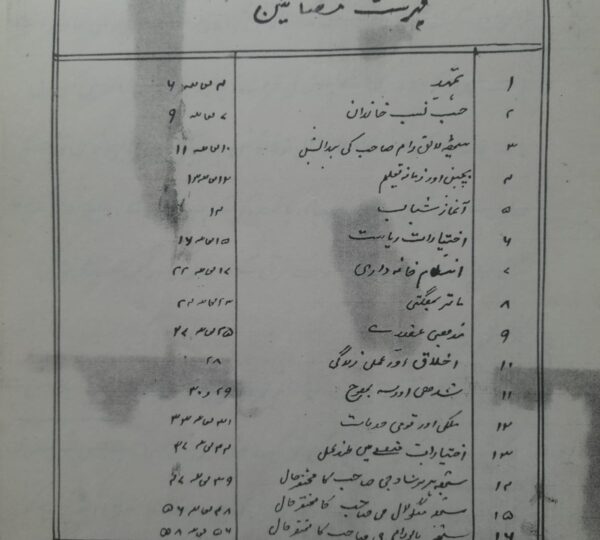 فہرست مضامین
۱ تمہید ۴ سے ۶
۲ حسب نسب خاندان ۷ سے ۹
۳ رام صاحب کی پیدائش ۱۰ سے ۱۱
۴ بچپن اور زمانہ تعلیم ۱۲ سے ۱۳
۵ آغاز شباب ۱۴
۶ اختیارات ریاست ۱۵ سے ۱۶
۷ انتظام خانہ داری ۱۷ سے ۲۲
۸ ماتر بھگتی ۲۳ سے ۲۴
۹ مذہبی عقیدے ۲۵ سے ۲۷
۱۰ اخلاق اور عملی زندگی ۲۸
۱۱ شدھی اور سہ بھوج ۲۹ و ۳۰
۱۲ ملکی اور قومی خدمات ۳۱ سے ۳۳
۱۳ اختیارات میں ۳۴ سے ۳۷
۱۴ جی صاحب کا مختصر حال ۳۹ سے ۴۷
۱۵ جی صاحب کا مختصر حال ۴۸ سے ۵۶
۱۶ جی صاحب کا مختصر حال ۵۶ سے ۵۸